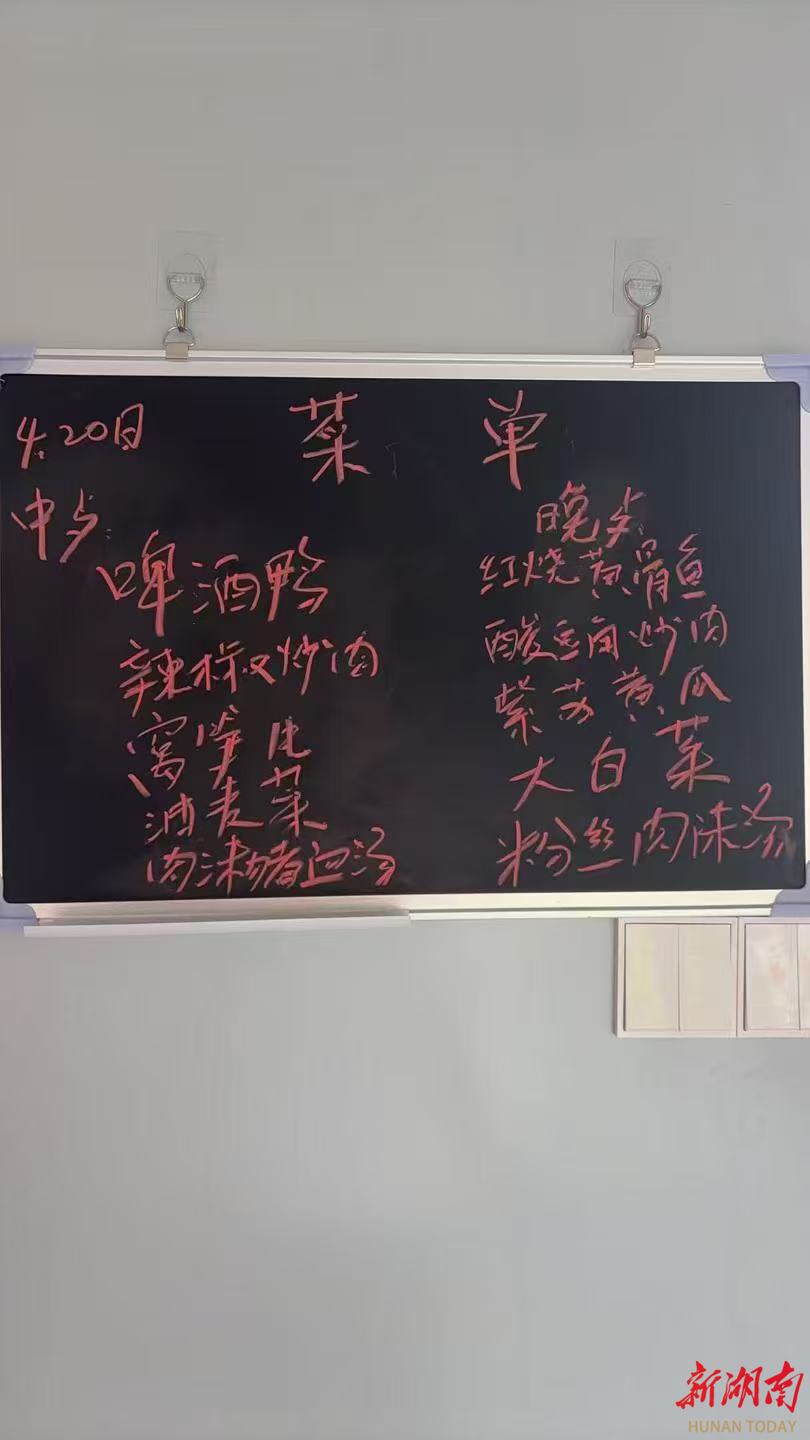 4.20日 菜单
中歺:
啤酒鸭
辣椒炒肉
窝笋片
油麦菜
肉沫猪血汤
晚歺:
红烧黄骨鱼
酸豆角炒肉
紫苏黄瓜
大白菜
粉丝肉沫汤
新湖南
HUNAN TODAY